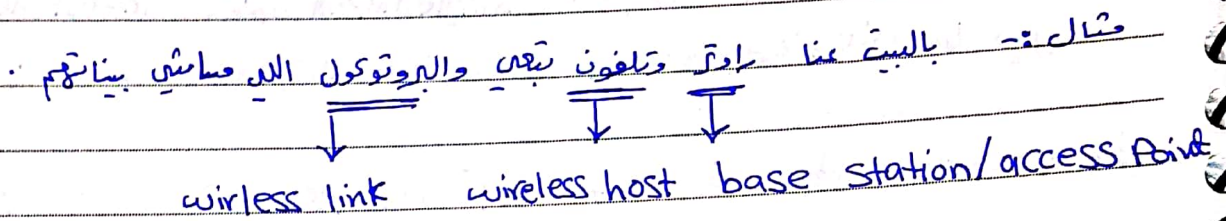 مثال :- بالبيت عنا راوتر وتلفون تبعي والبروتوكول اللي ماشي بيناتهم .
wirless link wireless host base station/access Point